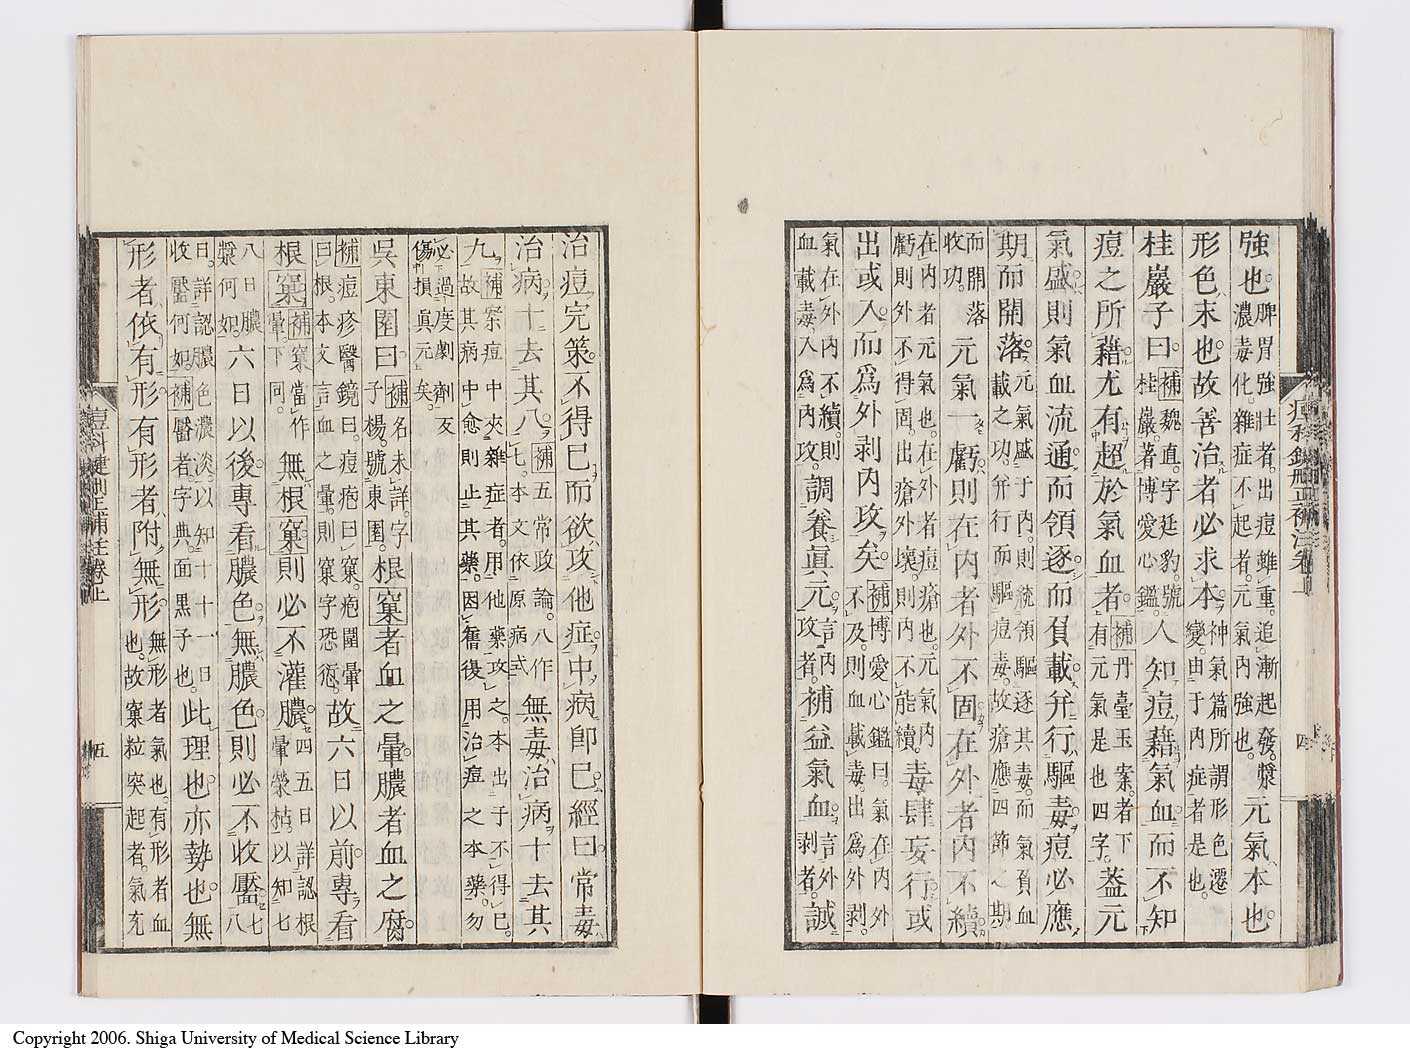 強也。脾胃強壯者。出痘雖重。追漸起發。漿濃毒化。雜症不起者。元氣內強也。元氣本也。
形色末也。故善治者必求本。神氣篇所謂形色遷變。由于內症者是也。
桂巖子曰。補魏直。字廷豹。號桂巖。著博愛心鑑。人知痘藉氣血而不知
痘之所藉尤有超於氣血者。補丹臺玉案。者下有元氣是也四字。蓋元
氣盛則氣血流通而領逐而負載并行驅毒痘必應
期而開落。元氣盛于內。則統領驅逐其毒。而氣負血載之功。并行而驅痘毒。故瘡應四節之期。
而開落收功。元氣一虧則在內者外不固在外者內不續。
在內者元氣也。在外者痘瘡也。元氣內虧則外不得固。出瘡外壞。則內不能續。毒肆妄行。或
出或入而爲外剥內攻矣。補博愛心鑑曰。氣在內外不及。則血載毒。出爲外剥。
氣在外內不續。則血載毒。入爲內攻。調養眞元。言內攻者。補益氣血。言外剥者。誠
治痘完策。不得已而欲攻他症。中病卽已。經曰。常毒
治病。十去其八。補五常政論。八作七。本文依原病式。無毒治病。十去其
九。補案痘中夾雜症者。用他藥攻之。本出于不得已。故其病中愈則止其藥。因舊復用治痘之本藥。勿
必過度劇劑。反傷損眞元矣。
吳東園曰。補名未詳。字子楊。號東園。根窠者血之暈。膿者血之腐。
補痘疹醫鏡曰。痘疤曰窠。疤圍暈曰根。本文言血之暈。則窠字恐衍。故六日以前專看
根窠。補窠當作暈。下同。無根窠則必不灌膿。四五日詳認根暈榮枯。以知七
八日膿漿何如。六日以後專看膿色。無膿色則必不收靨。七八
日。詳認膿色濃淡。以知十十一日收靨何如。補靨者。字典。面黑子也。此理也亦勢也。無
形者依有形。有形者附無形。無形者氣也。有形者血也。故窠粒突起者。氣充
五
四
Copyright 2006. Shiga University of Medical Science Library